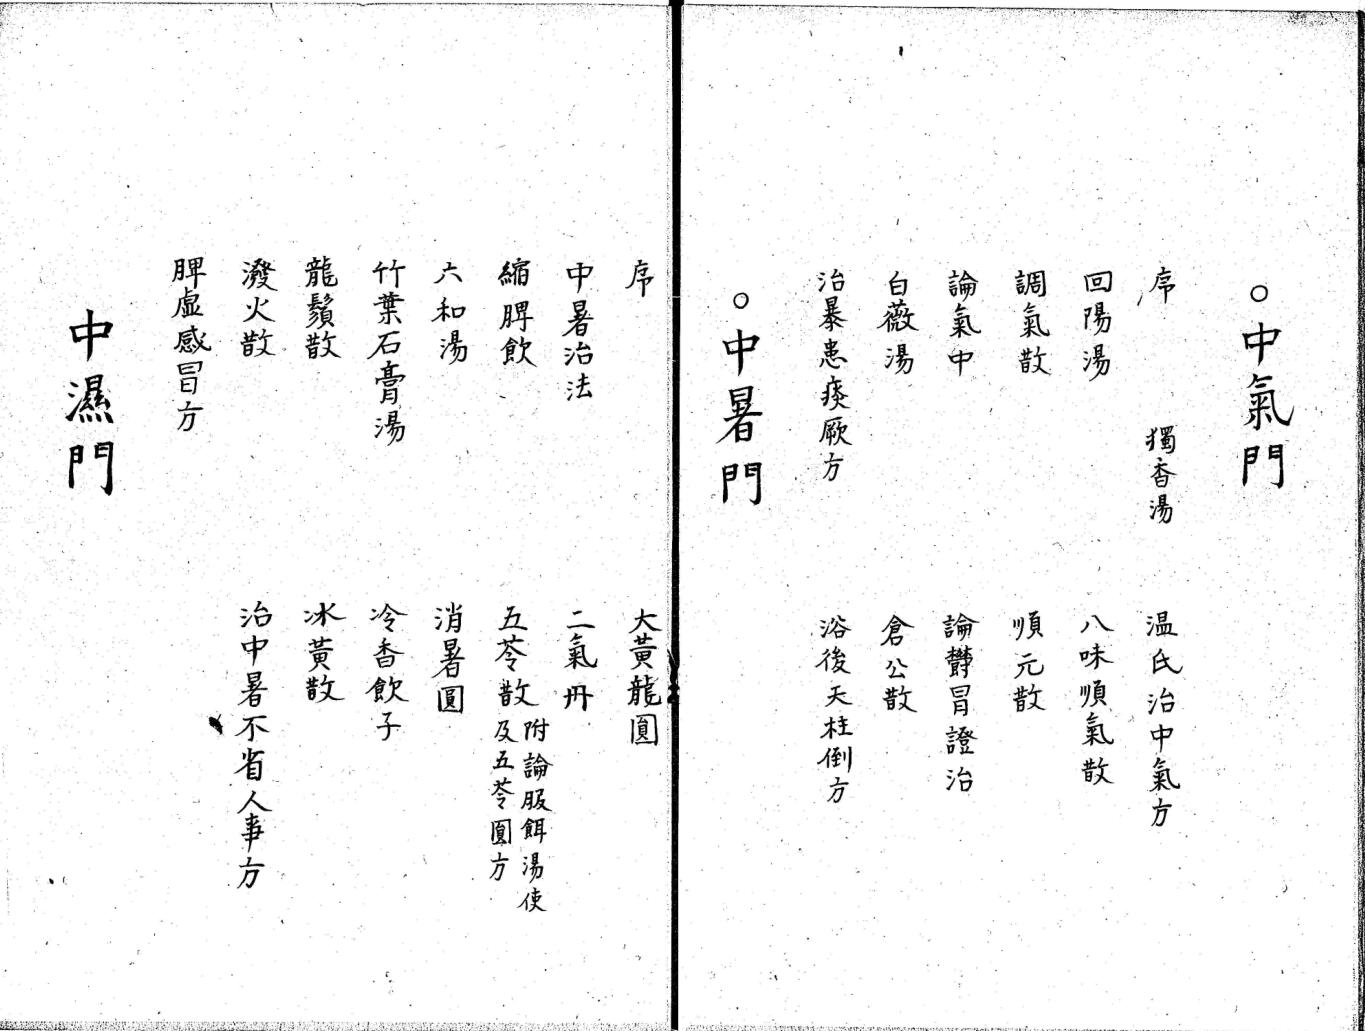 ○中氣門
序　獨香湯　温氏治中氣方
回陽湯　八味順氣散
調氣散　順元散
論氣中　論欝冒證治
白薇湯　倉公散
治暴患痰厥方　浴後天柱倒方
○中暑門
序　大黃龍圓
中暑治法　二氣丹
縮脾飲　五苓散附論服餌湯使
及五苓圓方
六和湯　消暑圓
竹葉石膏湯　冷香飲子
龍鬚散　冰黃散
潑火散　治中暑不省人事方
脾虛感冒方
中濕門